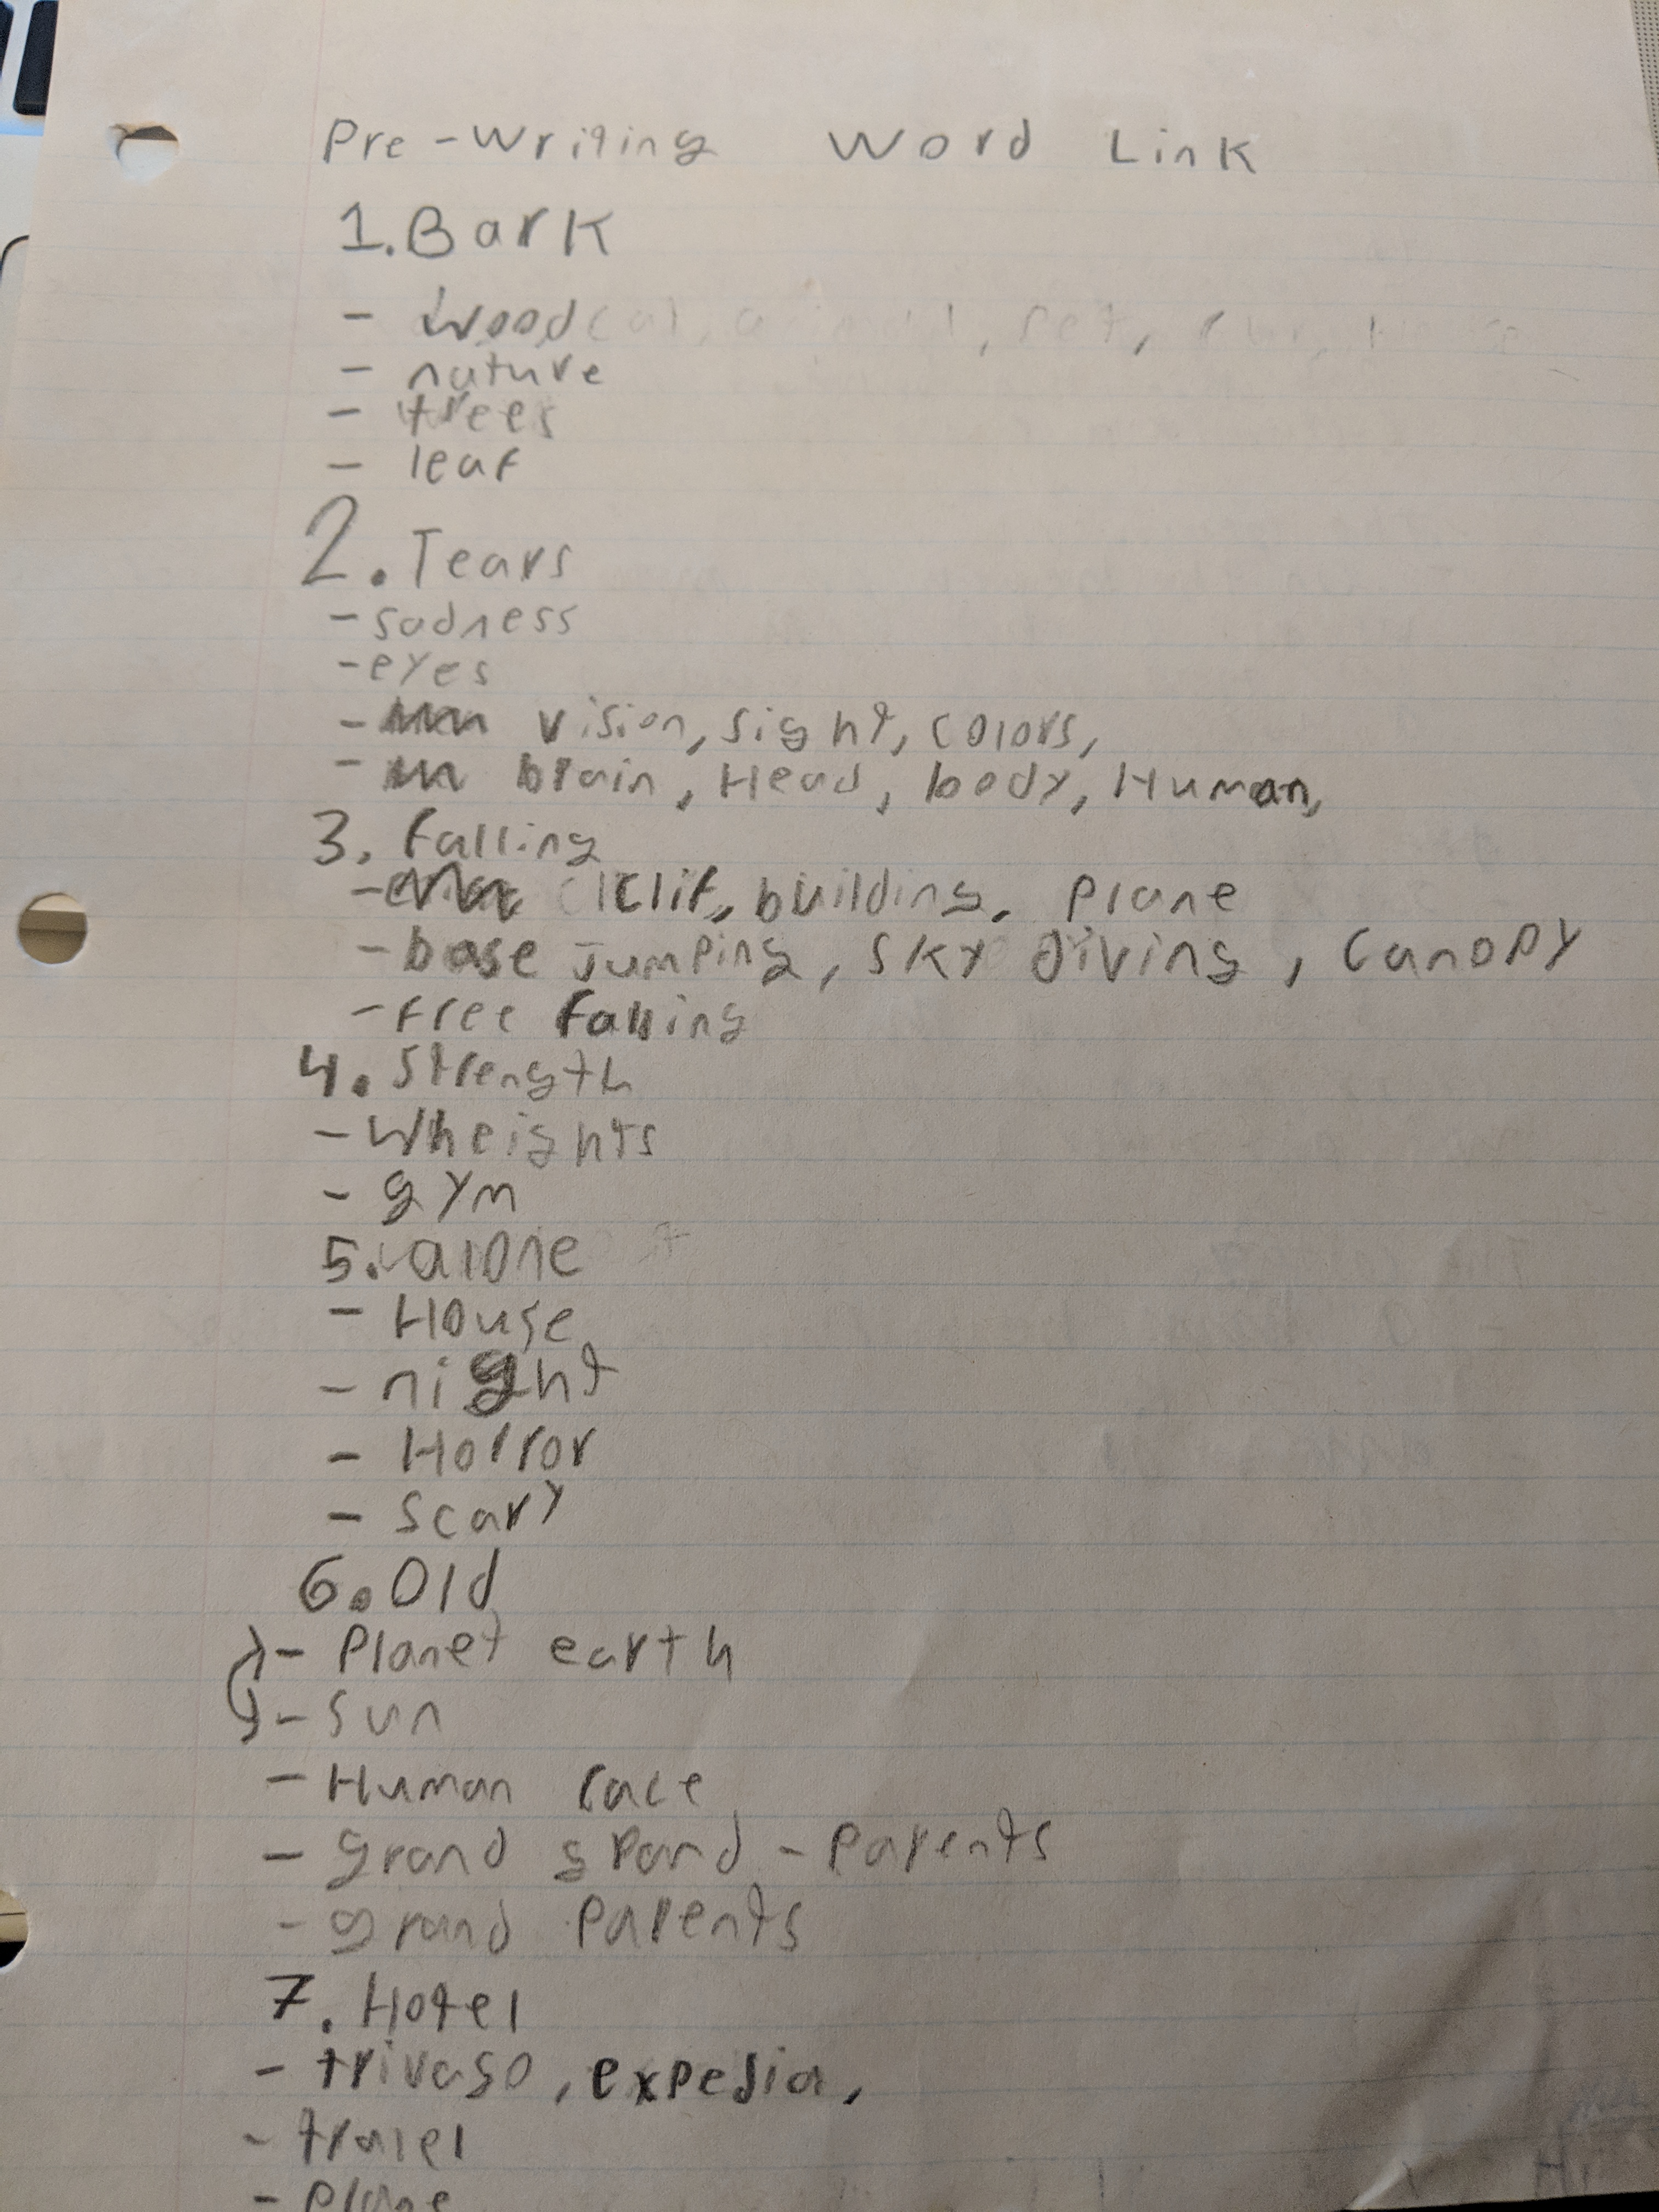 Pre-Writing Word Link
1. Bark
- wood
- nature
- trees
- leaf
2. Tears
- sadness
- eyes
- vision, sight, colors,
- brain, Head, body, Human,
3. falling
- clif, building, Plane
- base Jumping, SKY diving, canopy
- free falling
4. Strength
- Wheights
- gym
5. alone
- House
- night
- Horror
- Scary
6. Old
- Planet earth
- Sun
- Human race
- grand grand-Parents
- grand Parents
7. Hotel
- trivago, expedia,
- travel
- plane